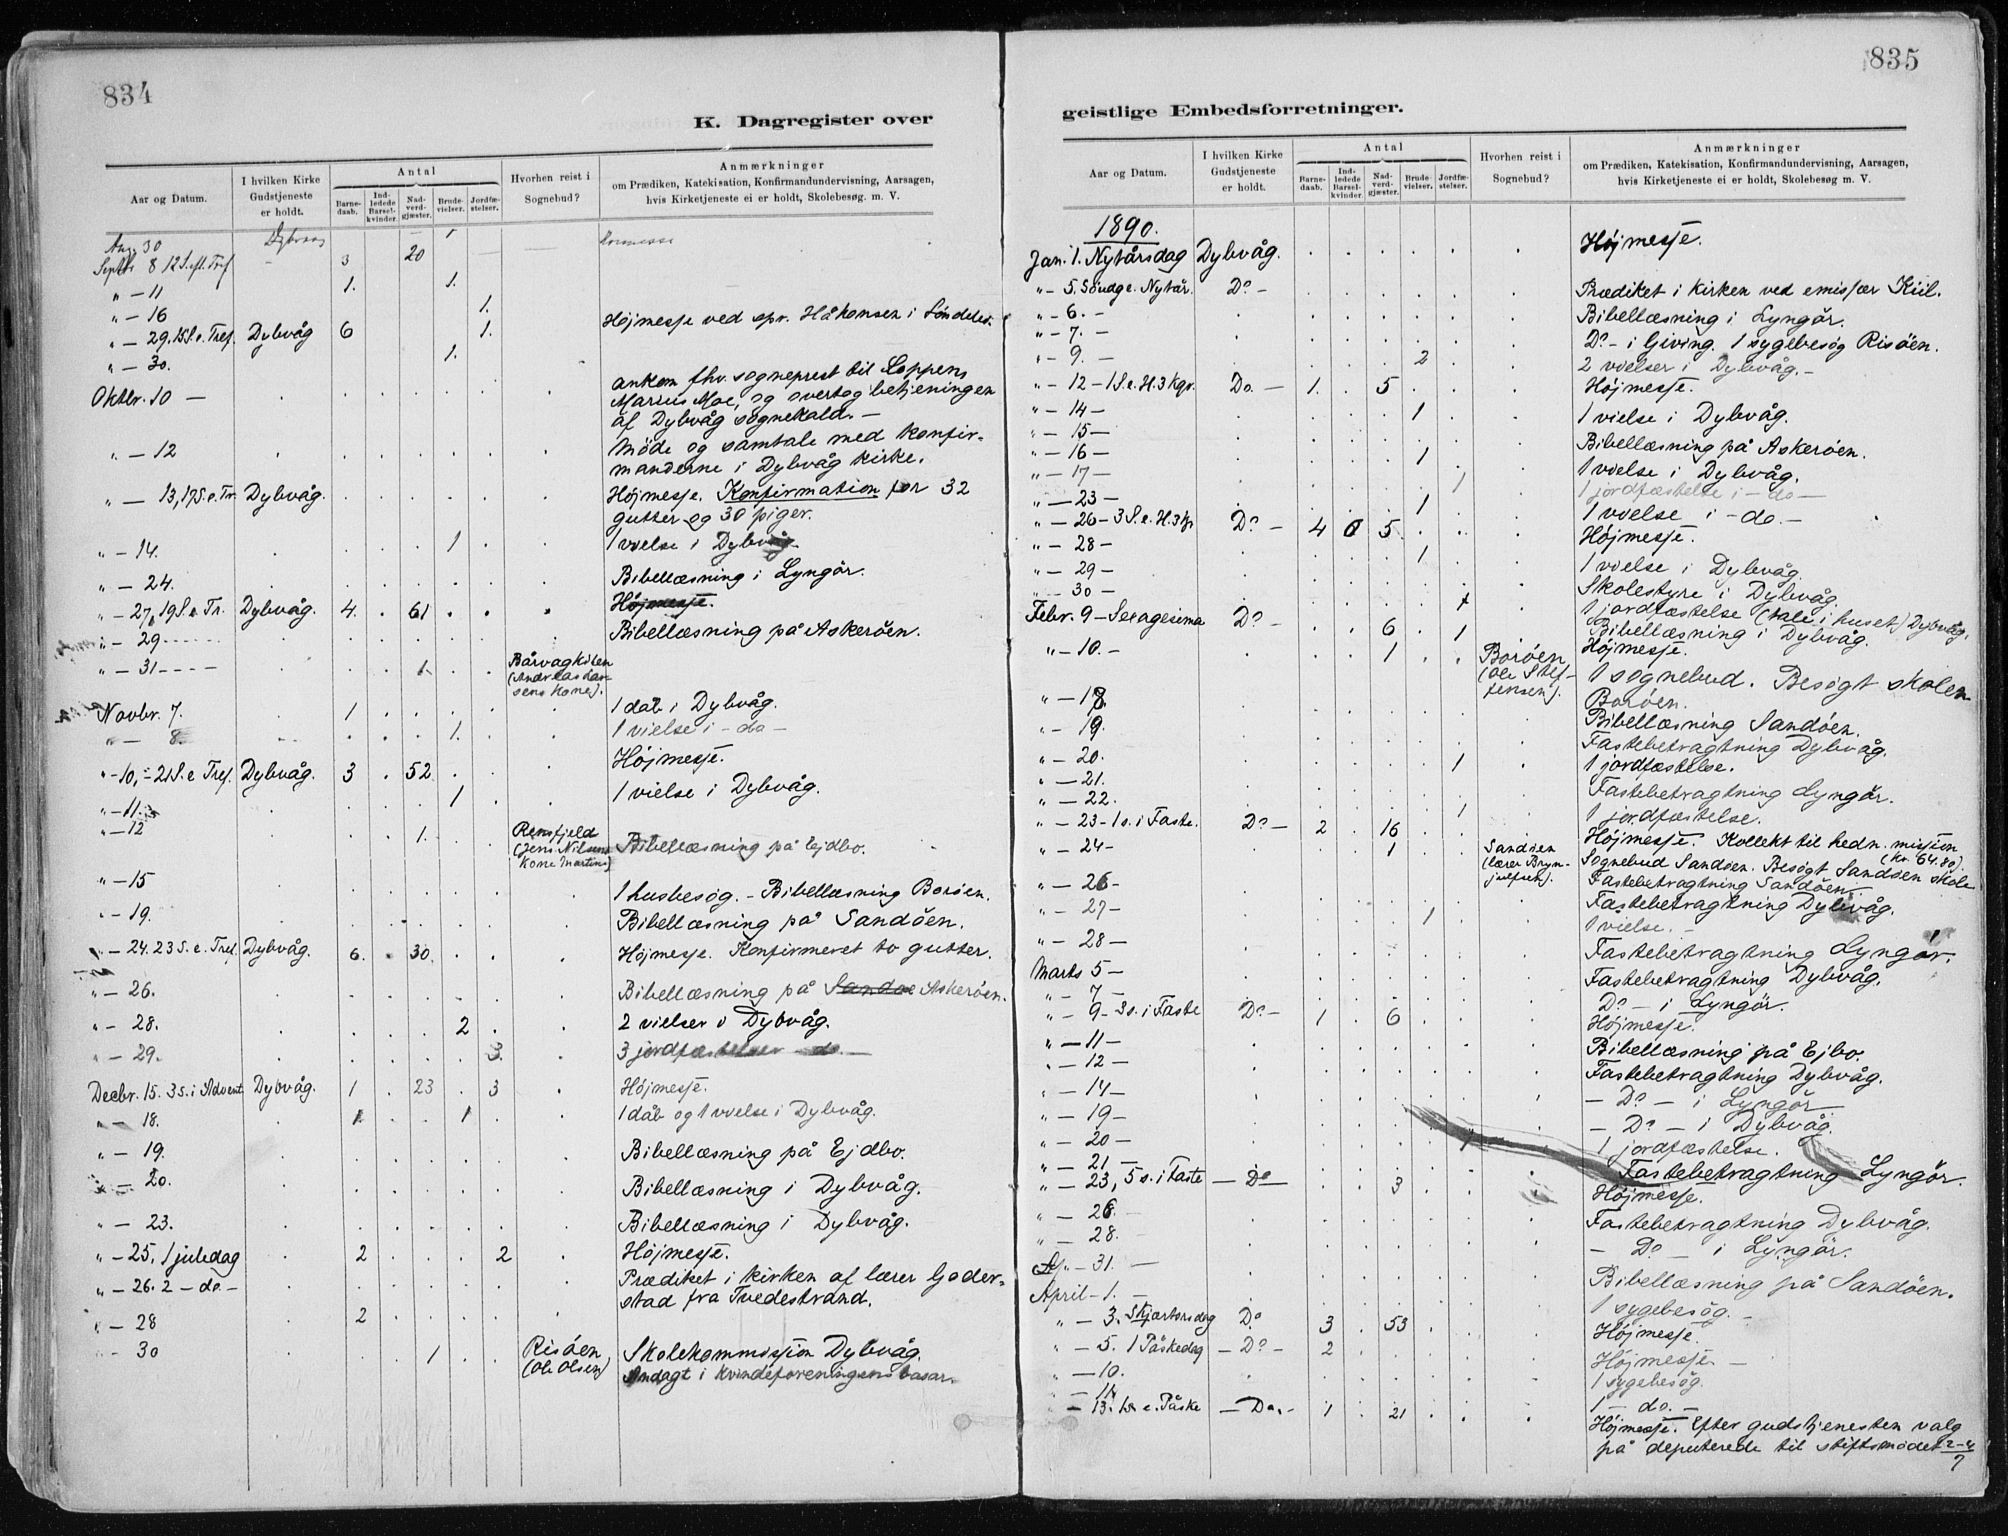 834
K. Dagregister over
Aar og Datum. I hvilken Kirke Gudstjeneste er holdt. Antal Barnedaab. Indledede Barselkvinder. Nadverdgjæster. Brudevielser. Jordfæstelser. Hvorhen reist i Sognebud? Anmærkninger om Prædiken, Katekisation, Konfirmandundervisning, Aarsagen, hvis Kirketjeneste ei er holdt, Skolebesøg. m. V.
Aug. 30 Dybvaag
Septbr 8 12 S. eft. Tref 3 20
" — 11 1. 1.
" — 16 1.
" — 29. 15 S. e. Tref. Dybvåg 6 1. Højmesse ved spr. Håkonsen i Søndeled.
" — 30. 1.
Oktbr. 10 — ankom fhv. sogneprest til Loppen
Marius Moe, og overtog betjeningen
af Dybvåg sognekald. —
" — 12 Møde og samtale med konfir-
manderne i Dybvåg kirke.
" — 13, 17 S. e. Tr. Dybvåg. Højmesse. Konfirmation for 32
gutter og 30 piger.
" — 14. 1 1 vielse i Dybvåg.
" — 24. Bibellæsning i Lyngör.
" — 27, 19 S. e. Tr. Dybvåg. 4. 61 Højmesse.
" — 29. Bibellæsning på Askeröen.
" — 31 1. Bårvagkilen
(Andreas Lar-
sens kone).
Novbr. 7. 1 1 dåb i Dybvåg.
" — 8. 1. 1 vielse i — do —
" — 10, — 21 S. e Tref. Dybvåg. 3 52 Højmesse.
" — 11. 1 1 vielse i Dybvåg.
" — 12 1. Rensfjeld
(Jens Nilsens
kone Martine) Bibellæsning på Ejdbo.
" — 15 1 husbesög. — Bibellæsning Boröen.
" — 19. Bibellæsning på Sandöen.
" — 24. 23 S. e. Tref. Dybvåg. 6. 30. Højmesse. Konfirmeret to gutter.
" — 26. Bibellæsning på Sandöe Askeröen.
" — 28. 2 2 vielser i Dybvåg.
" — 29. 3. 3 jordfæstelser — do —
Decbr. 15. 3 s. i Advent Dybvåg. 1 23 3 Højmesse.
" — 18. 1. 1 1 dåb og 1 vielse i Dybvåg.
" — 19. Bibellæsning på Ejdbo.
" — 20. Bibellæsning i Dybvåg.
" — 23. Bibellæsning i Dybvåg.
" — 25. 1 juledag 2 2 Højmesse.
" — 26. 2 — do. — Prædiket i kirken af lærer Goder-
stad fra Tvedestrand.
" — 28 2
" — 30 1 Risöen
(Ole Olsen) Skolekommission Dybvåg.
Andagt i kvindeforeningens basar.
835
geistlige Embedsforretninger.
Aar og Datum. I hvilken Kirke Gudstjeneste er holdt. Antal Barnedaab. Indledede Barselkvinder. Nadverdgjæster. Brudevielser. Jordfæstelser. Hvorhen reist i Sognebud? Anmærkninger om Prædiken, Katekisation, Konfirmandundervisning, Aarsagen, hvis Kirketjeneste ei er holdt, Skolebesøg. m. V.
1890.
Jan. 1. Nytårsdag Dybvåg. Højmesse.
" — 5. Söndg e. Nytår. Do — Prædiket i kirken ved emissær Kiil.
" — 6. — Bibellæsning i Lyngör.
" — 7. — Do — i Giving. 1 sygebesög Risöen.
" — 9. — 2 2 vielser i Dybvåg. —
" — 12 — 1 S. e. H. 3 kgr. Do. — 1. 5 Højmesse.
" — 14 — 1 1 vielse i Dybvåg.
" — 15 — Bibellæsning på Askeröen.
" — 16 — 1 1 vielse i Dybvåg.
" — 17 — 1 1 jordfæstelse i — do —
" — 23 — 1 1 vielse i — do. —
" — 26 — 3 S. e. H. 3 kg Do — 4 0 5 Højmesse.
" — 28 — 1 1 vielse i Dybvåg
" — 29 — Skolestyre i Dybvåg
" — 30 — 1 jordfæstelse (tale i huset) Dybvåg.
Bibellæsning i Dybvåg.
Febr. 9 — Sexagesima Do — 6 1 Højmesse.
" — 10. — 1 Boröen
(Ole Stef-
fensen). 1 sognebud. Besögt skolen
Boröen.
" — 18. Bibellæsning Sandöen.
" — 19. Fastebetragtning Dybvåg.
" — 20. 1 1 jordfæstelse.
" — 21. Fastebetragtning Lyngör.
" — 22. 1 1 jordfæstelse.
" — 23 — 1 s. i Faste. Do — 2 16 Højmesse. Kollekt til hedn. mission
(kr. 64.80).
" — 24 — 1 Sandöen
(lærer Bryn-
julfsen). Sognebud Sandöen. Besögt Sandöen skole
" — 26 — Fastebetragtning Sandöen.
" — 27 — 1 Fastebetragtning Dybvåg.
1 vielse. —
" — 28 — Fastebetragtning Lyngör.
Marts 5 — Fastebetragtning Dybvåg.
" — 7 — Do — i Lyngör.
" — 9 — 3 s. i Faste Do — 1 6 Højmesse.
" — 11 — Bibellæsning på Ejbo.
" — 12 — Fastebetragtning Dybvåg.
" — 14 — — Do — i Lyngör
" — 19 — — Do — i Dybvåg.
" — 20 — 1 1 jordfæstelse.
" — 21 — Fastebetragtning Lyngör.
" — 23, 5 s. i Faste — Do — 3 Højmesse.
" — 26. Fastebetragtning Dybvåg.
" — 28. — Do — i Lyngör.
" — 31. — Bibellæsning på Sandöen.
April — 1. — 1 sygebesög. —
" — 3. Skjærtorsdag Do 3 53 Højmesse.
" — 5. 1 Påskedag — Do — 2 Højmesse. —
" — 10. 1 sygebesög.
" — 11. 1 — do. —
" — 13. 1 s. e. Påske — Do. — 1 21 Højmesse. Efter gudstjenesten valg
på deputerede til stiftsmödet 2-4/7